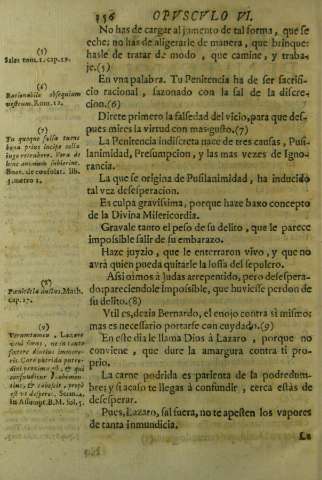 356 OPVSCVLO VI.
No has de cargar al jumento de tal forma, que se
eche; no has de aligerarle de manera, que brinque:
hasle de tratar de modo, que camine, y traba-
je.(5)
En vna palabra. Tu Penitencia ha de ser sacrifi-
cio racional, sazonado con la sal de la discre-
cion.(6)
Direte primero la falsedad del vicio, para que des-
pues mires la virtud con mas gusto.(7)
La Penitencia indiscreta nace de tres causas, Pusi-
lanimidad, Presumpcion, y las mas vezes de Igno-
rancia.
La que se origina de Pusilanimidad, ha inducido
tal vez desesperacion.
Es culpa gravissima, porque haze baxo concepto
de la Divina Misericordia.
Gravale tanto el peso de su delito, que le parece
impossible salir de su embarazo.
Haze juyzio, que le enterraron vivo, y que no
avrà quien pueda quitarle la losa del sepulcro.
Assi oimos à Judas arrepentido, pero desespera-
do: pareciendole impossible, que huviesse perdon de
su delito.(8)
Vtil es, dezia Bernardo, el enojo contra si mismo:
mas es necessario portarse con cuydado.(9)
En este dia le llama Dios à Lazaro, porque no
conviene, que dure la amargura contra ti pro-
prio.
La carne podrida es parienta de la podredum-
bre; y si acaso te llegas à confundir, cerca estàs de
desesperar.
Pues, Lazaro, sal fuera, no te apesten los vapores
de tanta inmundicia.
La
(5)
Sales tom. 1. cap. 12.
(6)
Rationabile obsequium
vestrum. Rom. 12.
(7)
Tu quoque falsa tuens
bona prius incipe colla
iugo retrahere. Vera de
hinc animum subierint.
Boet. de consolat. lib.
3. metro 1.
(8)
Pœnitentia ductus. Math.
cap. 27.
(9)
Verumtamen, Lazare
veni foras, ne in tanto